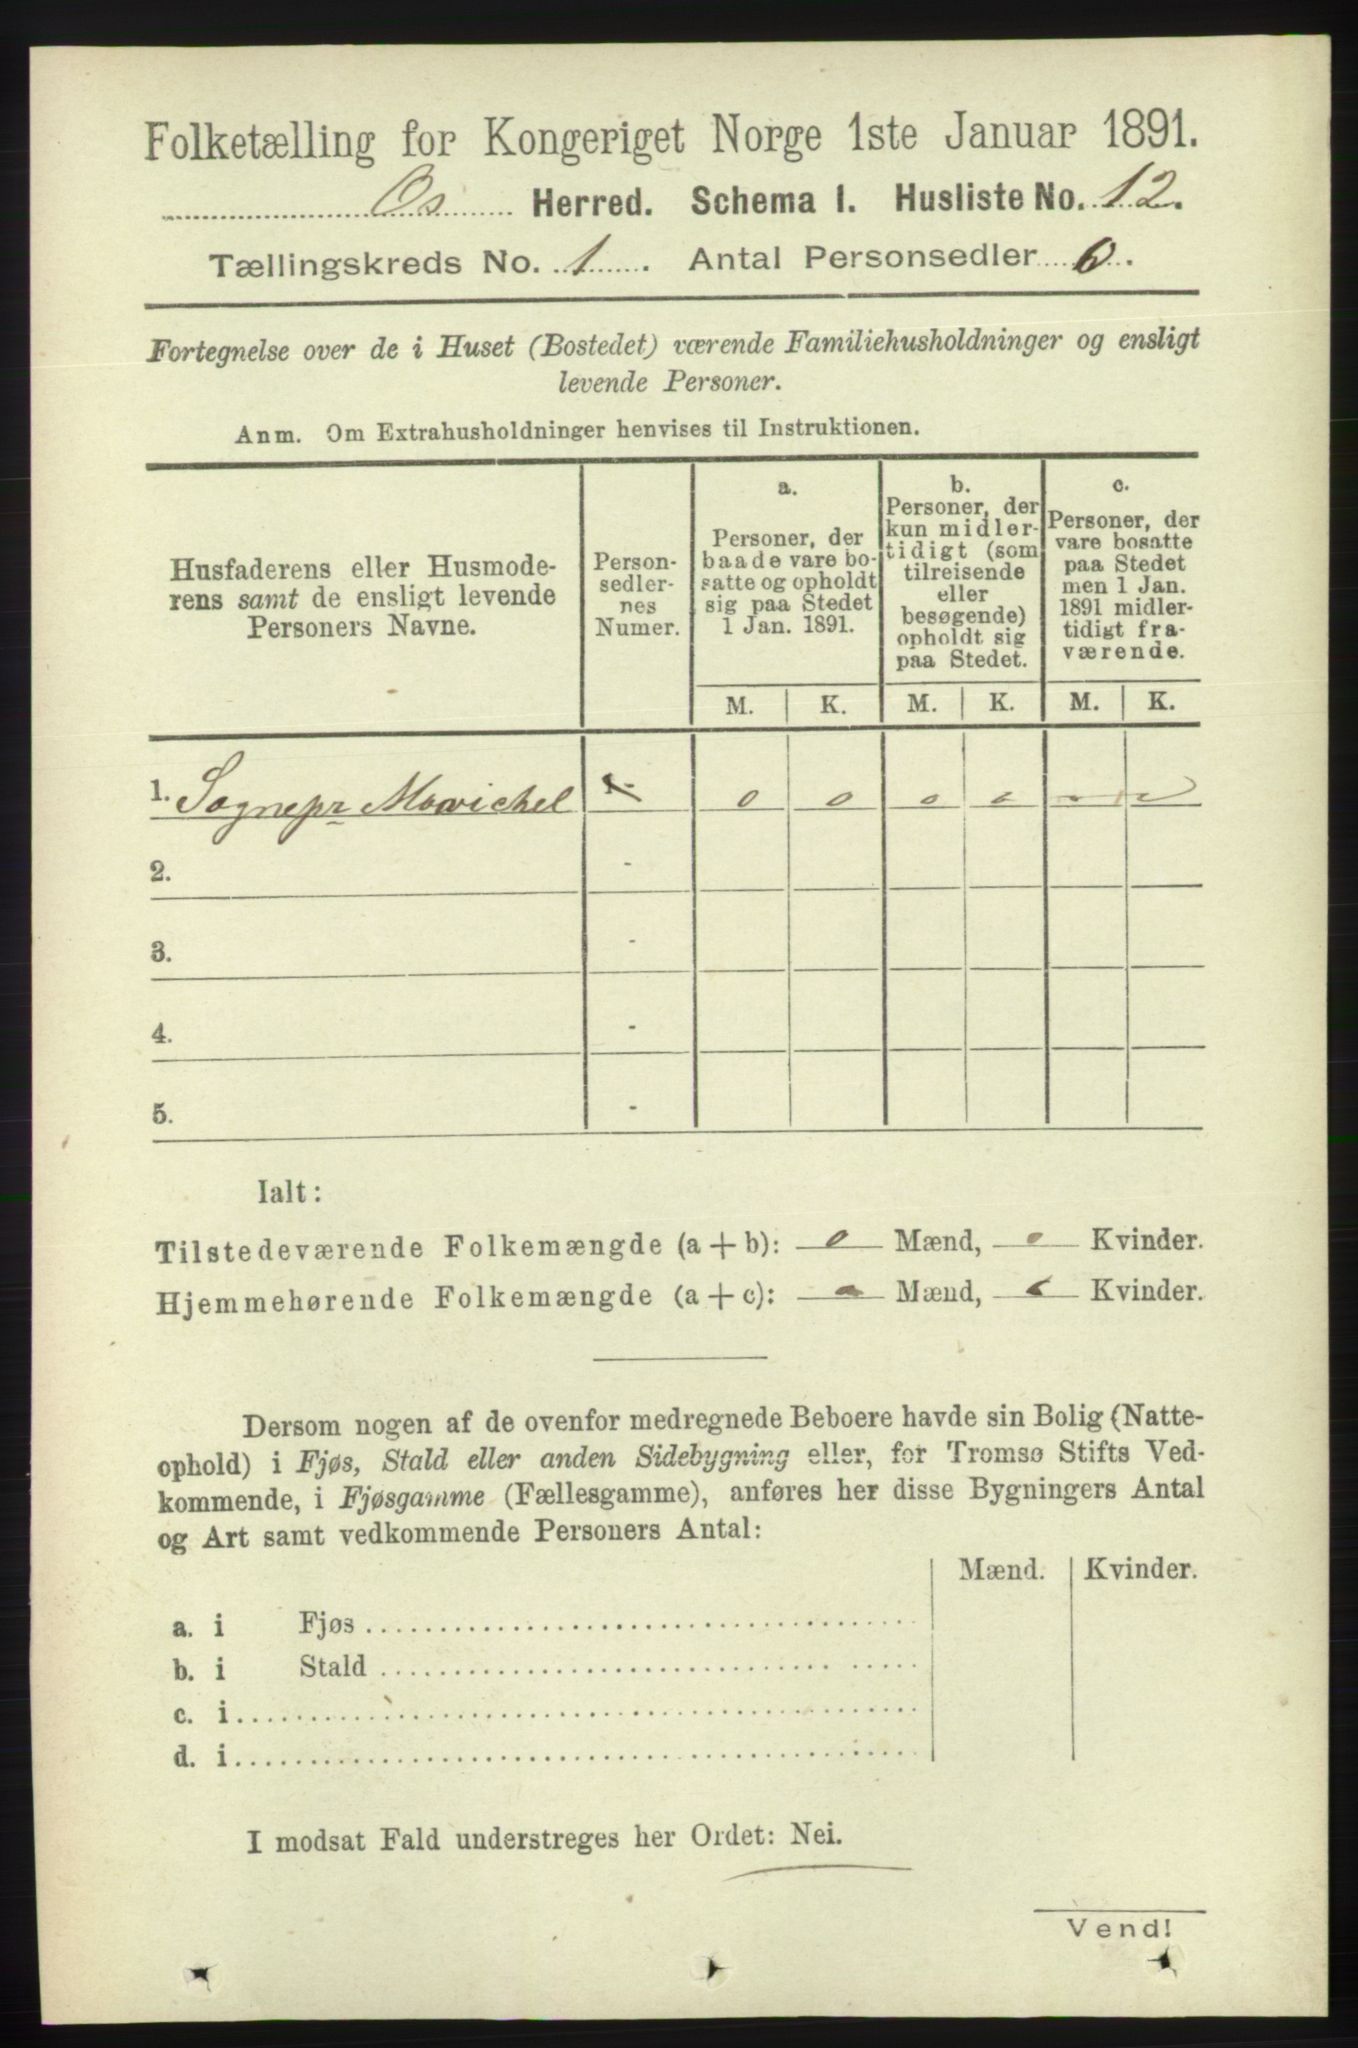 Folketælling for Kongeriget Norge 1ste Januar 1891.
Os Herred. Schema I. Husliste No. 12.
Tællingskreds No. 1. Antal Personsedler 0.
Fortegnelse over de i Huset (Bostedet) værende Familiehusholdninger og ensligt
levende Personer.
Anm. Om Extrahusholdninger henvises til Instruktionen.
Husfaderens eller Husmode-
rens samt de ensligt levende
Personers Navne.
Person-
sedler-
nes
Numer.
a.
Personer, der
baade vare bo-
satte og opholdt
sig paa Stedet
1 Jan. 1891.
b.
Personer, der
kun midler-
tidigt (som
tilreisende
eller
besøgende)
opholdt sig
paa Stedet.
c.
Personer, der
vare bosatte
paa Stedet
men 1 Jan.
1891 midler-
tidigt fra-
værende.
M. K. M. K. M. K.
1. Sognepr 0 0 0 0
2. -
3. -
4. -
5. -
Ialt:
Tilstedeværende Folkemængde (a + b): 0 Mænd, 0 Kvinder.
Hjemmehørende Folkemængde (a + c): 0 Mænd, 0 Kvinder.
Dersom nogen af de ovenfor medregnede Beboere havde sin Bolig (Natte-
ophold) i Fjøs, Stald eller anden Sidebygning eller, for Tromsø Stifts Ved-
kommende, i Fjøsgamme (Fællesgamme), anføres her disse Bygningers Antal
og Art samt vedkommende Personers Antal:
Mænd. Kvinder.
a. i Fjøs
b. i Stald
c. i
d. i
I modsat Fald understreges her Ordet: Nei.
Vend!